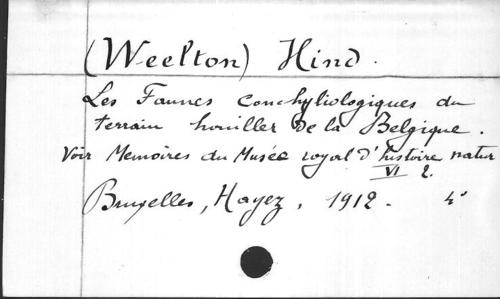 (Weelton) Hind.
Les Faunes conchyliologiques du
terrain houiller de la Belgique.
Voir Memoires du Musée royal d'histoire natur
VI 2.
Bruxelles, Hayez, 1912. 4°